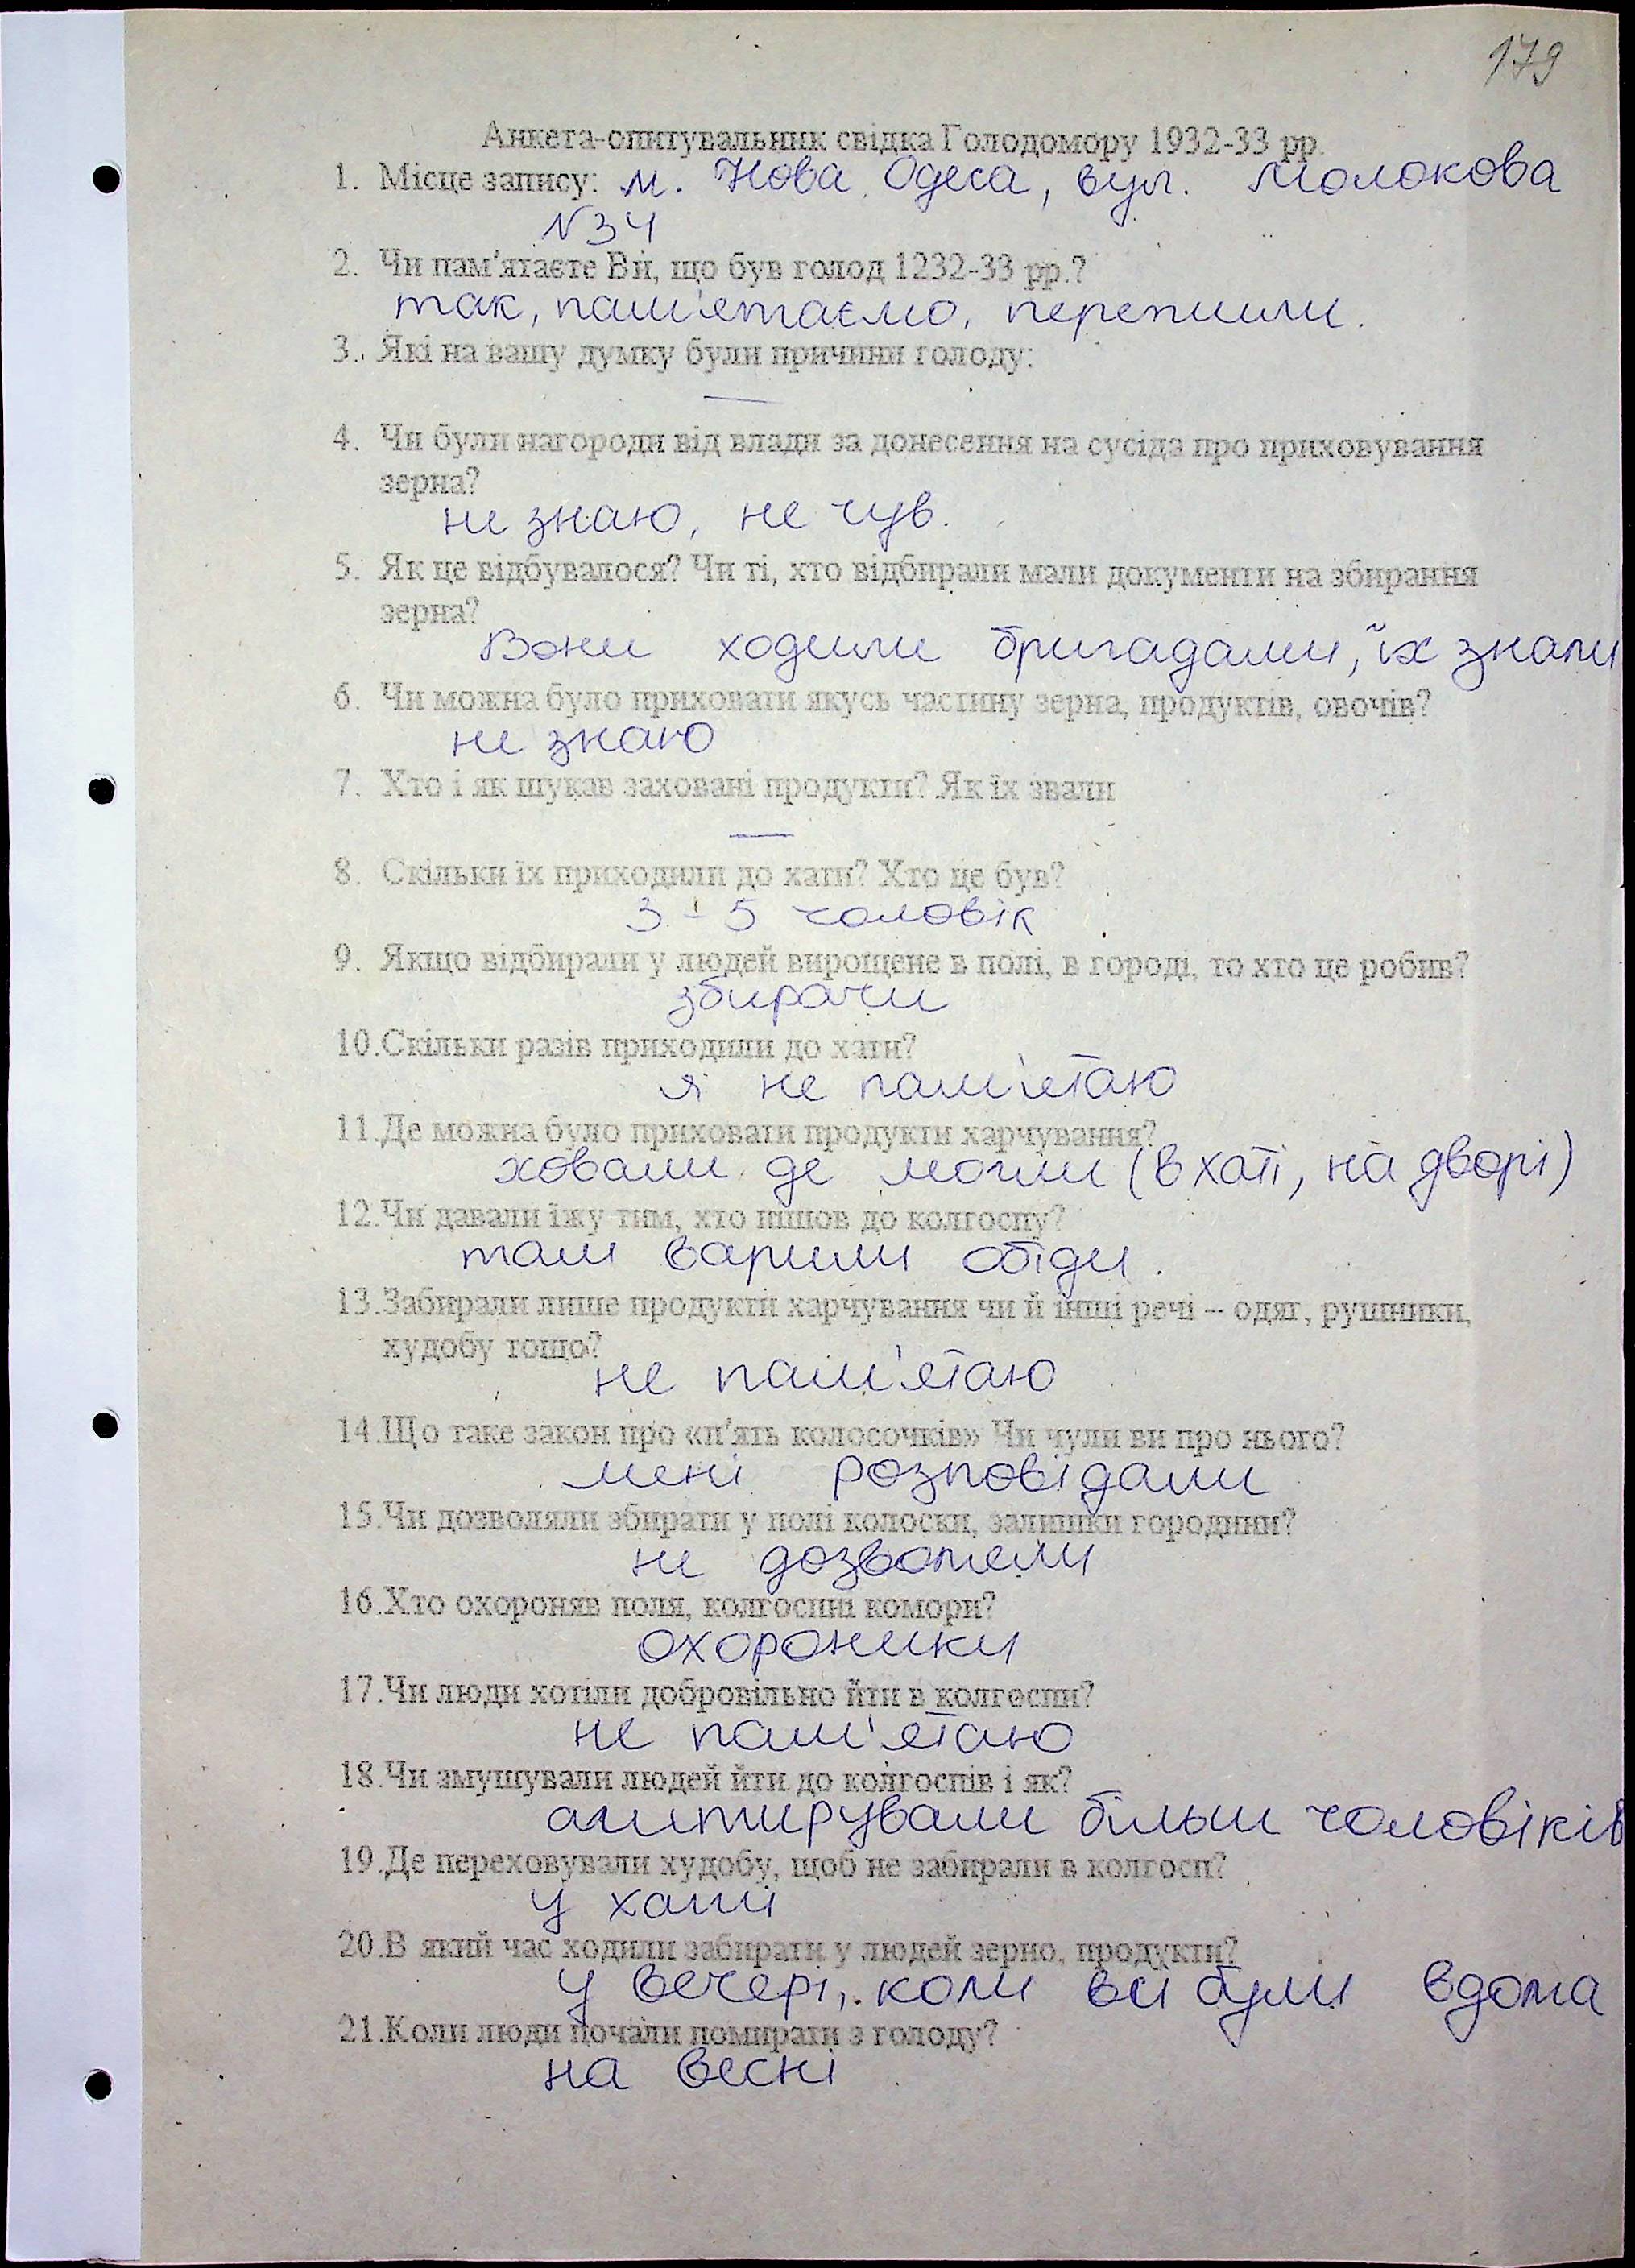 179
Анкета-опитувальник свідка Голодомору 1932-33 рр.
1. Місце запису: м. Нова Одеса, вул. Молокова
№34
2. Чи пам'ятаєте Ви, що був голод 1232-33 рр.?
так, пам'ятаємо, пережили.
3. Які на вашу думку були причини голоду:
—
4. Чи були нагороди від влади за донесення на сусіда про приховування
зерна?
не знаю, не чув.
5. Як це відбувалося? Чи ті, хто відбирали мали документи на збирання
зерна?
Вони ходили бригадами, їх знали
6. Чи можна було приховати якусь частину зерна, продуктів, овочів?
не знаю
7. Хто і як шукав заховані продукти? Як їх звали
—
8. Скільки їх приходили до хати? Хто це був?
3 - 5 чоловік
9. Якщо відбирали у людей вирощене в полі, в городі, то хто це робив?
збирачи
10.Скільки разів приходили до хати?
я не пам'ятаю
11.Де можна було приховати продукти харчування?
ховали де могли (в хаті, на дворі)
12.Чи давали їжу тим, хто пішов до колгоспу?
там варили обіди.
13.Забирали лише продукти харчування чи й інші речі – одяг, рушники,
худобу тощо?
не пам'ятаю
14.Що таке закон про «п'ять колосочків» Чи чули ви про нього?
мені розповідали
15.Чи дозволяли збирати у полі колоски, залишки городини?
не дозволяли
16.Хто охороняв поля, колгоспні комори?
охороники
17.Чи люди хотіли добровільно йти в колгоспи?
не пам'ятаю
18.Чи змушували людей йти до колгоспів і як?
агитирували більш чоловіків
19.Де переховували худобу, щоб не забирали в колгосп?
у хаті
20.В який час ходили забирати у людей зерно, продукти?
у вечері, коли всі були вдома
21.Коли люди почали помирати з голоду?
на весні